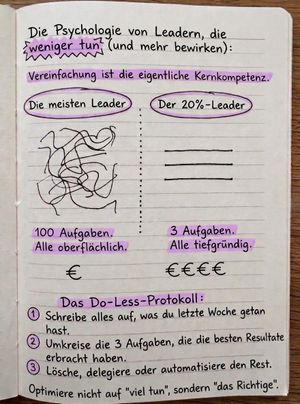 Die Psychologie von Leadern, die
weniger tun (und mehr bewirken):
Vereinfachung ist die eigentliche Kernkompetenz.
Die meisten Leader
Der 20%-Leader
100 Aufgaben.
Alle oberflächlich.
€
3 Aufgaben.
Alle tiefgründig.
€€€€
Das Do-Less-Protokoll:
1 Schreibe alles auf, was du letzte Woche getan
hast.
2 Umkreise die 3 Aufgaben, die die besten Resultate
erbracht haben.
3 Lösche, delegiere oder automatisiere den Rest.
Optimiere nicht auf "viel tun", sondern "das Richtige".